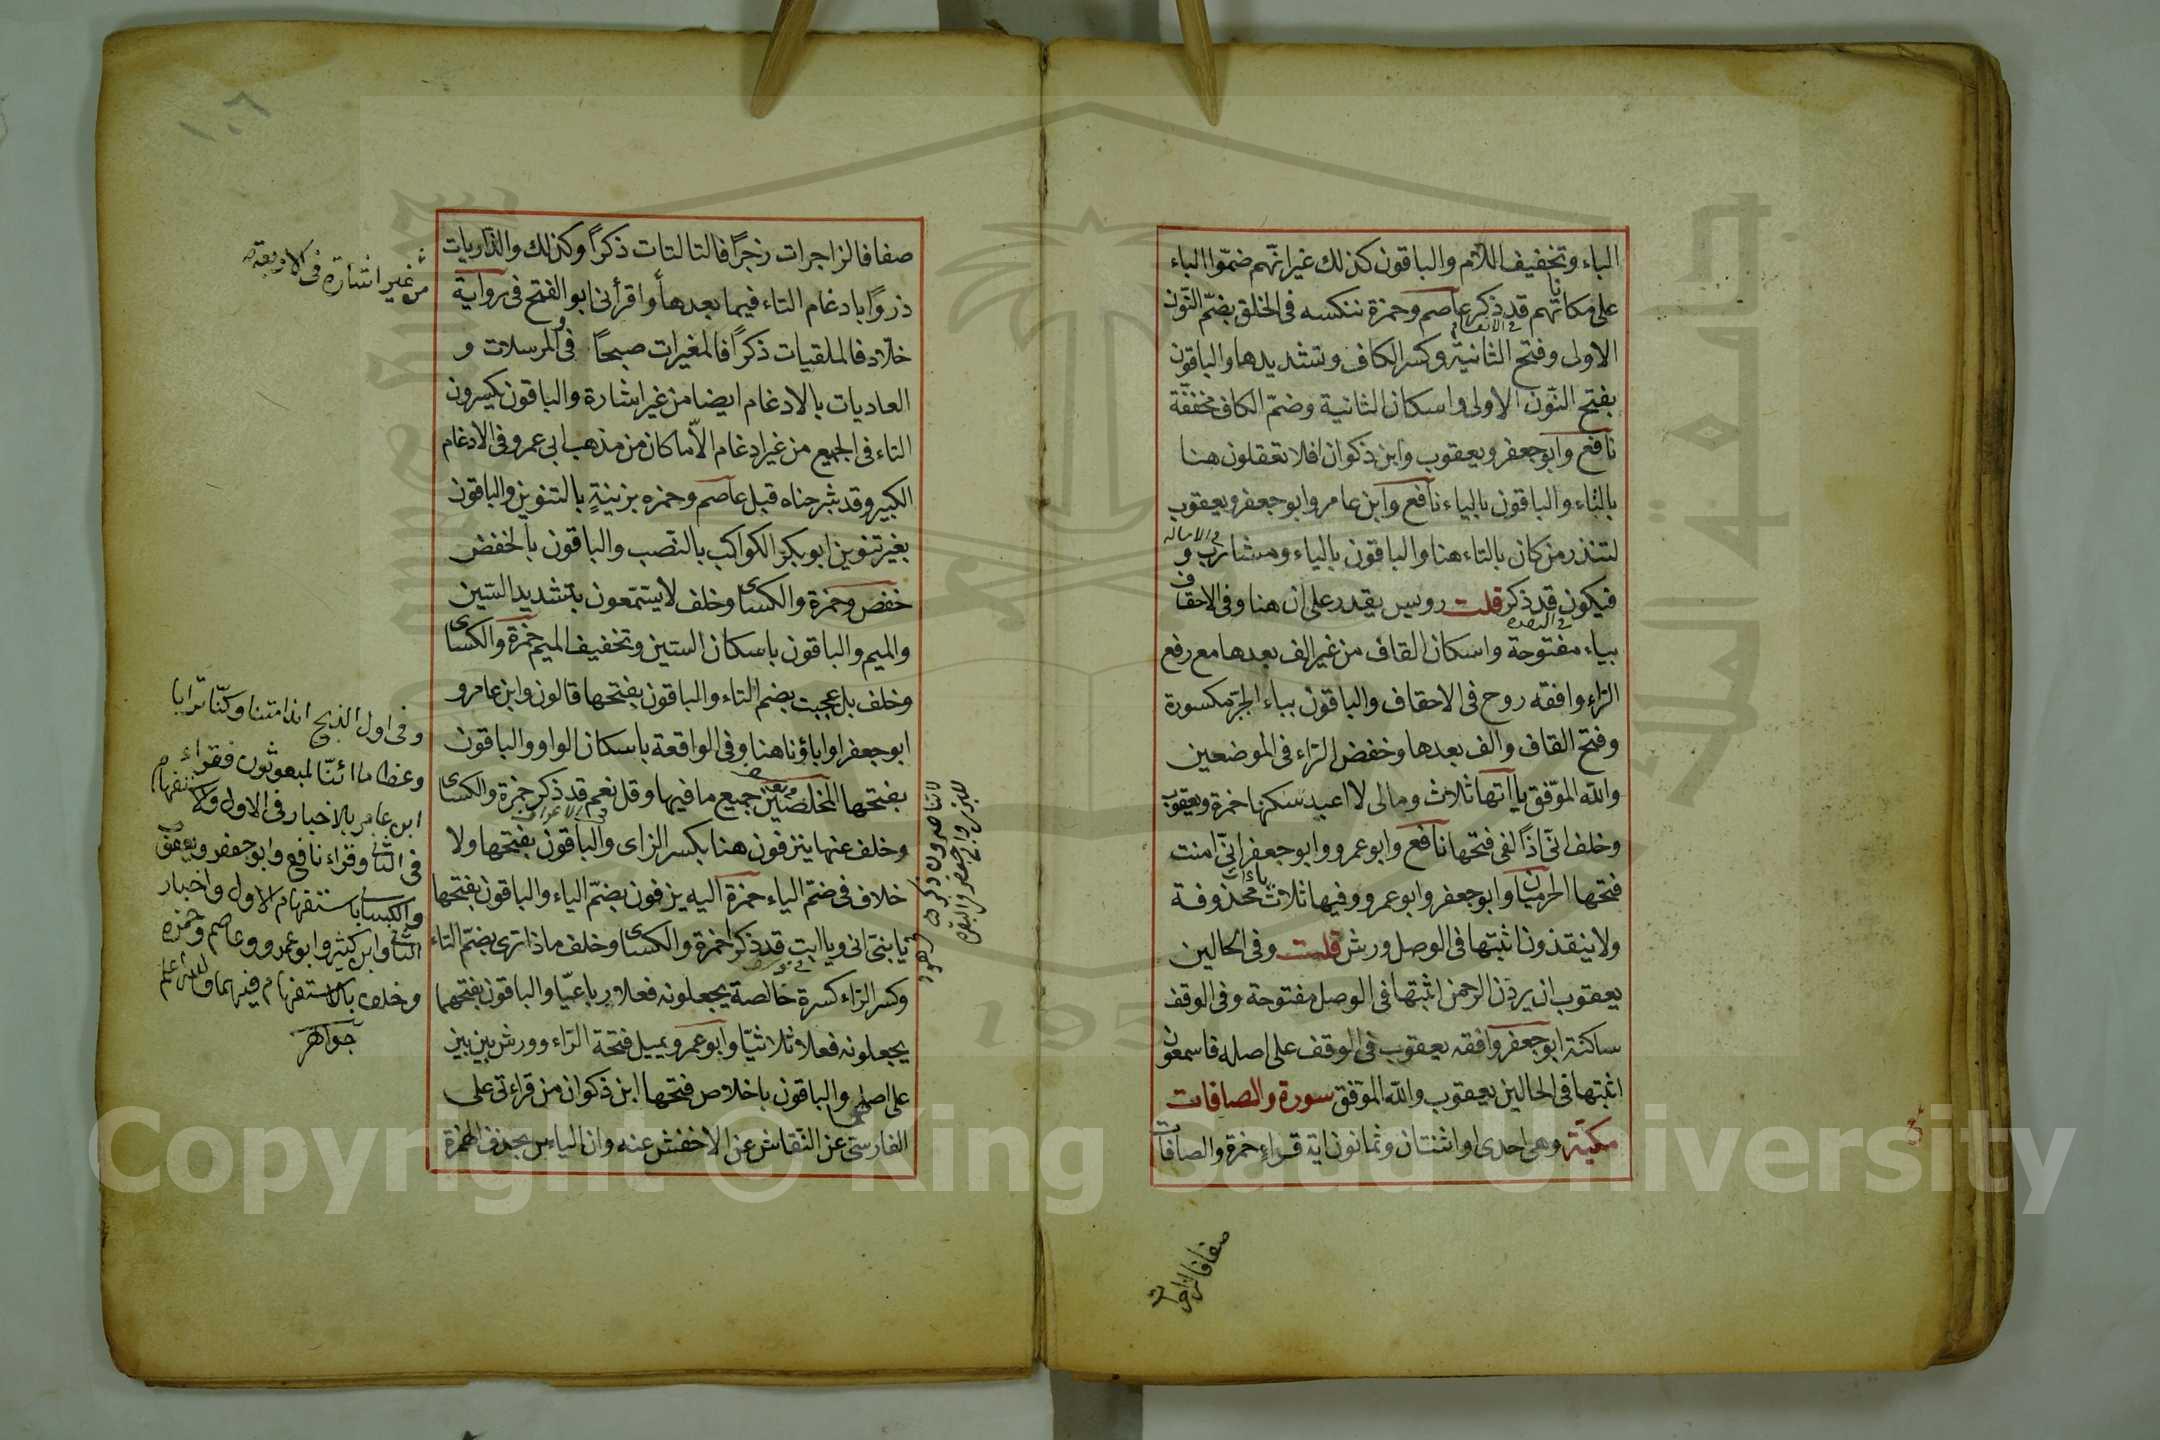 الباء وتخفيف اللام والباقون كذلك غير انهم ضمّوا الباء
على مكانتهم قد ذكر عاصم وحمزة ننكسه في الخلق بضمّ النّون
في الانعام
الاولى وفتح الثانية وكسر الكاف وتشديدها والباقون
بفتح النّون الاولى واسكان الثانية وضمّ الكاف مخففّة
نافع وابوجعفر ويعقوب وابن ذكوان افلا تعقلون هنا
بالتاء والباقون بالياء نافع وابن عامر وابوجعفر ويعقوب
لتنذر من كان بالتاء هنا والباقون بالياء ومشارب و
في الامالة
فيكون قد ذكر قلت رويس يقدر على ان هنا وفي الاحقاف
في البقرة
بياء مفتوحة واسكان القاف من غير الف بعدها مع رفع
الرّاء وافقه روح في الاحقاف والباقون بباء الجرّ مكسورة
وفتح القاف والف بعدها وخفض الرّاء في الموضعين
والله الموّفق ياآتها ثلاث ومالى لا اعبد سكنها حمزة ويعقوب
وخلف انّى اذًا لفى فتحها نافع وابوعمرو وابوجعفر انّى امنت
فتحها الحرميّان وابوجعفر وابوعمرو وفيها ثلاث ياءات محذوفة
ولا ينقذون اثبتها في الوصل ورش قلت وفي الحالين
يعقوب ان يردن الرحمن اثبتها في الوصل مفتوحة وفي الوقف
ساكنة ابوجعفر وافقه يعقوب في الوقف على اصله فاسمعون
اثبتها في الحالين يعقوب والله الموّفق سورة والصافات
مكيّة وهي احدى او اثنتان وثمانون اية قراء حمزة والصافات
صفا فالزاجرات
صفا فالزاجرات زجرًا فالتاليات ذكرًا وكذلك والذّاريات
ذروًا بادغام التاء فيما بعدها واقرأنى ابوالفتح في رواية
من غير اشارة في الاربعة
خلّاد فالملقيات ذكرًا فالمغيرات صبحًا في والمرسلات و
العاديات بالادغام ايضا من غير اشارة والباقون يكسرون
التاء في الجميع من غير ادغام الّا ما كان من مذهب ابى عمرو في الادغام
الكبير وقد شرحناه قبل عاصم وحمزه بزينةٍ بالتنوين والباقون
بغير تنوين ابوبكر الكواكب بالنصب والباقون بالخفض
حفص وحمزة والكسائى وخلف لا يسّمّعون بتشديد السّين
والميم والباقون باسكان السّين وتخفيف الميم حمزة والكسائى
وخلف بل عجبت بضم التاء والباقون بفتحها قالون وابن عامر و
ابوجعفر اواباؤنا هنا وفي الواقعة باسكان الواو والباقون
بفتحها المخلصين جميع ما فيها وقل نعم قد ذكر حمزة والكسائى
وخلف عنها ينزفون هنا بكسر الزاى والباقون بفتحها ولا
خلاف في ضمّ الياء حمزة اليه يزفون بضمّ الياء والباقون بفتحها
يا بنىّ انى ويا ابت قد ذكر حمزة والكسائى وخلف ماذا ترى بضمّ التاء
وكسر الرّاء كسرة خالصة يجعلونه فعلا رباعيّا والباقون بفتحهما
يجعلونه فعلا ثلاثيّا وابوعمرو يميل فتحة الرّاء وورش بين بين
على اصلهما والباقون باخلاص فتحها ابن ذكوان من قراءتى على
الفارسىّ عن النّقاش عن الاخفش عنه وان الياس بحذف الهمزة
وفى اول الذبح ائذا متنا وكنّا ترابا
وعظاما ائنّا لمبعوثون فقراء
ابن عامر بالاخبار في الاول والاستفهام
في الثانى وقراء نافع وابوجعفر ويعقوب
والكسائى باستفهام الاول واخبار
الثانى وابن كثير وابوعمرو وعاصم وحمزه
وخلف بالاستفهام فيهما والله اعلم
جواهر
Copyright © King Saud University
1957